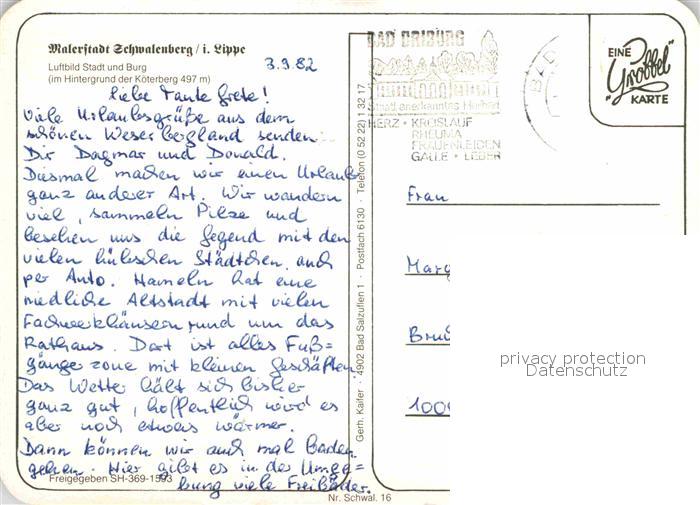 Malerstadt Schwalenberg / i. Lippe
Luftbild Stadt und Burg
(im Hintergrund der Köterberg 497 m)
3.9.82
Liebe Tante Grete!
Viele Urlaubsgrüße aus dem
schönen Weserbergland senden
Dir Dagmar und Donald.
Diesmal machen wir einen Urlaub
ganz anderer Art. Wir wandern
viel, sammeln Pilze und
besehen uns die Gegend mit den
vielen hübschen Städtchen auch
per Auto. Hameln hat eine
niedliche Altstadt mit vielen
Fachwerkhäusern rund um das
Rathaus. Dort ist alles Fuß=
gängerzone mit kleinen Geschäften.
Das Wetter hält sich bisher
ganz gut, hoffentlich wird es
aber noch etwas wärmer.
Dann können wir auch mal baden
gehen. Hier gibt es in der Umge=
bung viele Freibäder.
Freigegeben SH-369-1593
Nr. Schwal. 16
Gerh. Kaifer · 4902 Bad Salzuflen 1 · Postfach 6130 · Telefon (0 52 22) 1 32 17
BAD DRIBURG
Staatl. anerkanntes Heilbad
HERZ · KREISLAUF
RHEUMA
FRAUENLEIDEN
GALLE · LEBER
BAD
EINE
"Grobbel"
KARTE
Frau
Marg
Brü
100
privacy protection
Datenschutz